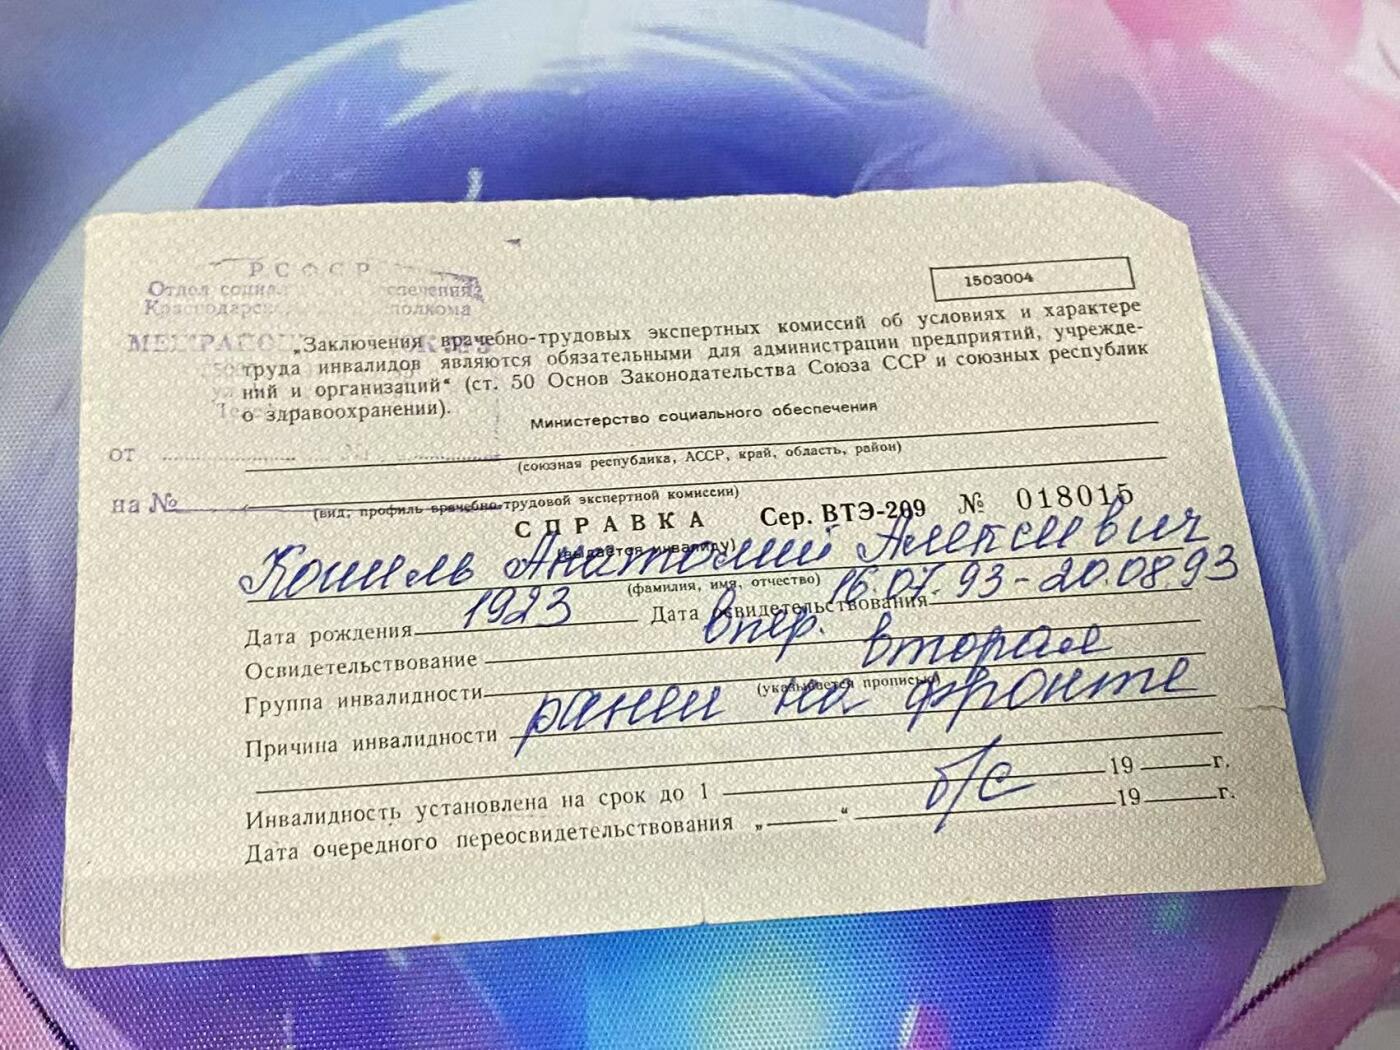 РСФСР
Отдел
1503004
„Заключения врачебно-трудовых экспертных комиссий об условиях и характере
труда инвалидов являются обязательными для администрации предприятий, учрежде-
ний и организаций“ (ст. 50 Основ Законодательства Союза ССР и союзных республик
о здравоохранении).
Министерство социального обеспечения
(союзная республика, АССР, край, область, район)
от
на №
(вид, профиль врачебно-трудовой экспертной комиссии)
СПРАВКА Сер. ВТЭ-209 № 018015
(выдается инвалиду)
Кошель Анатолий Алексеевич
(фамилия, имя, отчество)
Дата рождения 1923 Дата освидетельствования 16.07.93-20.08.93
Освидетельствование впер.
Группа инвалидности вторая
(указывается прописью)
Причина инвалидности ранен на фронте
Инвалидность установлена на срок до 1 б/с 19 г.
Дата очередного переосвидетельствования „ “ 19 г.